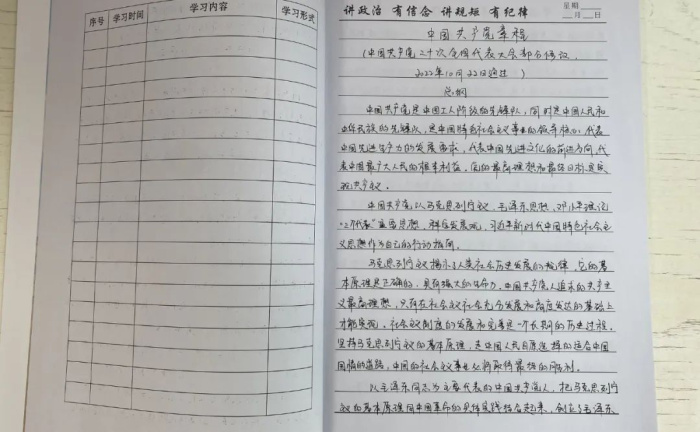 序号 学习时间 学习内容 学习形式
讲政治 有信念 讲规矩 有纪律
星期
月 日
中国共产党章程
(中国共产党二十次全国代表大会部分修改,
2022年10月22日通过)
总纲
中国共产党是中国工人阶级的先锋队,同时是中国人民和
中华民族的先锋队,是中国特色社会主义事业的领导核心,代表
中国先进生产力的发展要求,代表中国先进文化的前进方向,代
表中国最广大人民的根本利益。党的最高理想和最终目标是实
现共产主义。
中国共产党以马克思列宁主义、毛泽东思想、邓小平理论、
“三个代表”重要思想、科学发展观、习近平新时代中国特色社会主
义思想作为自己的行动指南。
马克思列宁主义揭示了人类社会历史发展的规律,它的基
本原理是正确的,具有强大的生命力。中国共产党人追求的共产主
义最高理想,只有在社会主义社会充分发展和高度发达的基础上
才能实现。社会主义制度的发展和完善是一个长期的历史过程。
坚持马克思列宁主义的基本原理,走中国人民自愿选择的适合中国
国情的道路,中国的社会主义事业必将取得最终的胜利。
以毛泽东同志为主要代表的中国共产党人,把马克思列宁
主义的基本原理同中国革命的具体实践结合起来,创立了毛泽东